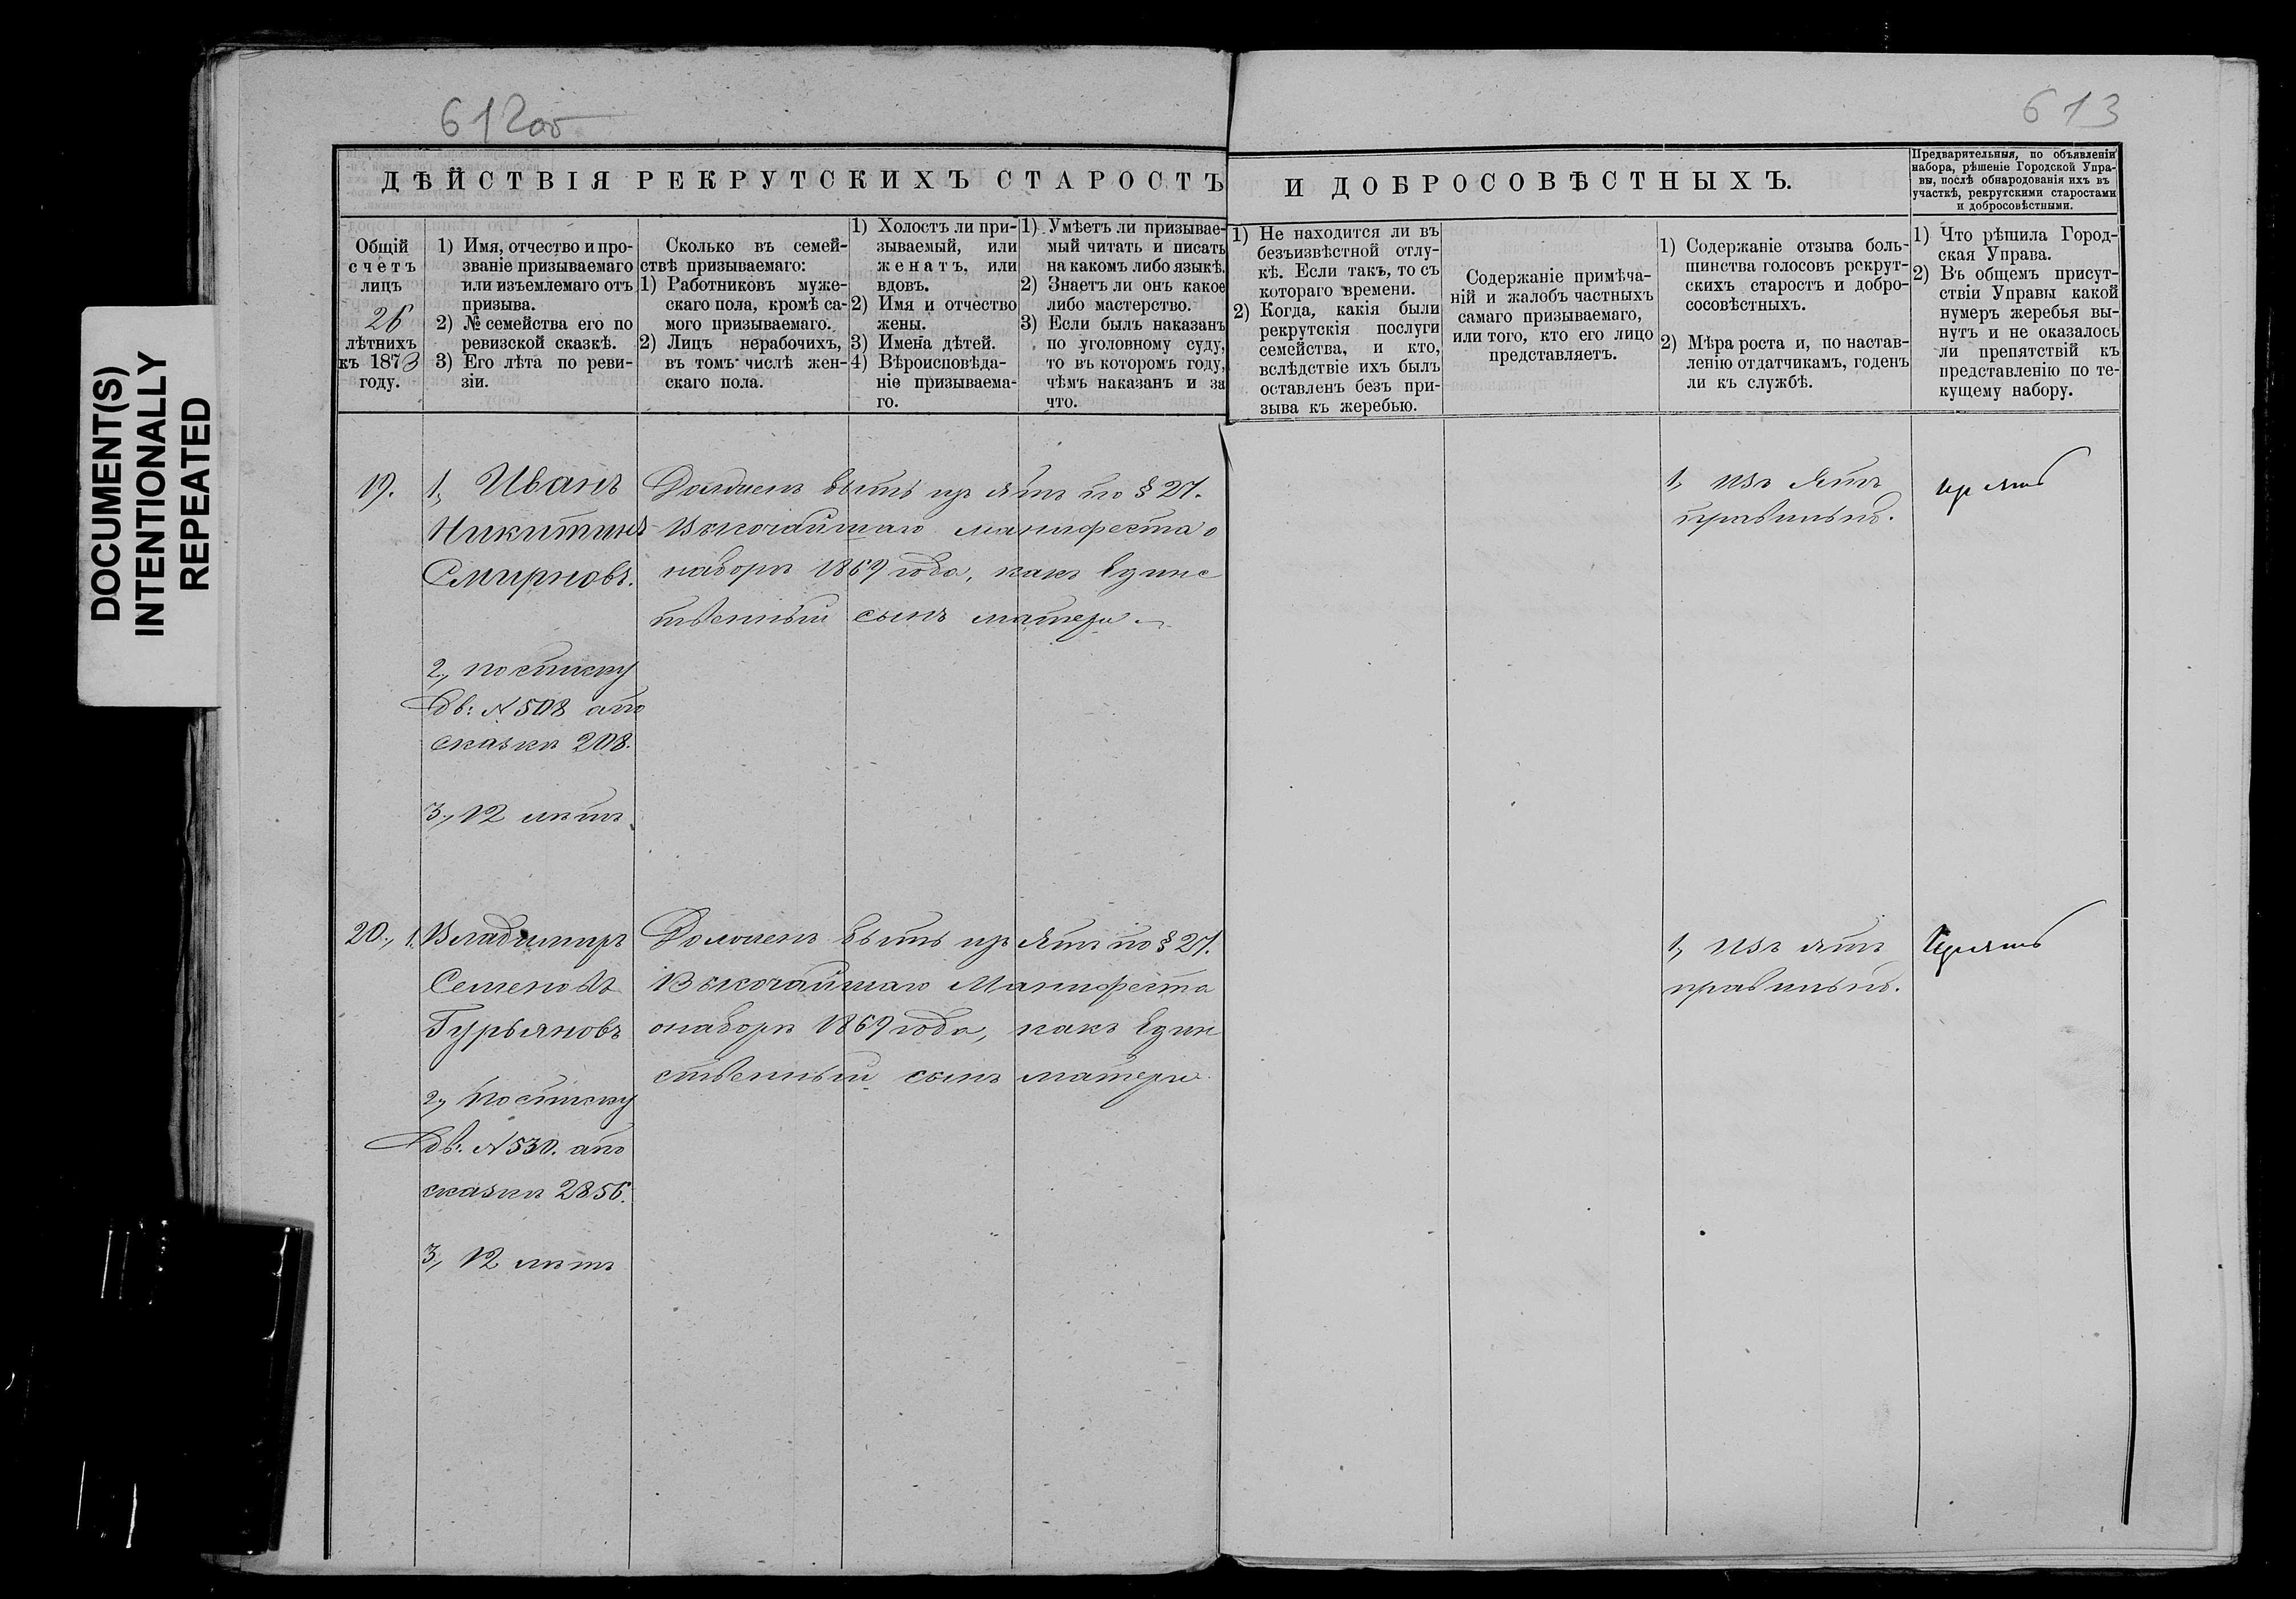 DOCUMENT(S)
INTENTIONALLY
REPEATED
612об
613
ДѢЙСТВІЯ РЕКРУТСКИХЪ СТАРОСТЪ
И ДОБРОСОВѢСТНЫХЪ.
Предварительныя, по объявленіи
набора, рѣшеніе Городской Упра-
вы, послѣ обнародованія ихъ въ
участкѣ, рекрутскими старостами
и добросовѣстными.
Общій
счетъ
лицъ
26
лѣтнихъ
къ 1873
году.
1) Имя, отчество и про-
званіе призываемаго
или изъемлемаго отъ
призыва.
2) № семейства его по
ревизской сказкѣ.
3) Его лѣта по реви-
зіи.
Сколько въ семей-
ствѣ призываемаго:
1) Работниковъ муже-
скаго пола, кромѣ са-
мого призываемаго.
2) Лицъ нерабочихъ,
въ томъ числѣ жен-
скаго пола.
1) Холостъ ли при-
зываемый, или
женатъ, или
вдовъ.
2) Имя и отчество
жены.
3) Имена дѣтей.
4) Вѣроисповѣда-
ніе призываема-
го.
1) Умѣетъ ли призывае-
мый читать и писать
на какомъ либо языкѣ.
2) Знаетъ ли онъ какое
либо мастерство.
3) Если былъ наказанъ
по уголовному суду,
то въ которомъ году,
чѣмъ наказанъ и за
что.
1) Не находится ли въ
безъизвѣстной отлу-
кѣ. Если такъ, то съ
котораго времени.
2) Когда, какія были
рекрутскія послуги
семейства, и кто,
вслѣдствіе ихъ былъ
оставленъ безъ при-
зыва къ жеребью.
Содержаніе примѣча-
ній и жалобъ частныхъ
самаго призываемаго,
или того, кто его лицо
представляетъ.
1) Содержаніе отзыва боль-
шинства голосовъ рекрут-
скихъ старостъ и добро-
сосовѣстныхъ.
2) Мѣра роста и, по настав-
ленію отдатчикамъ, годенъ
ли къ службѣ.
1) Что рѣшила Город-
ская Управа.
2) Въ общемъ присут-
ствіи Управы какой
нумеръ жеребья вы-
нутъ и не оказалось
ли препятствій къ
представленію по те-
кущему набору.
19.
1, Иванъ
Никитинъ
Смирновъ.
2, по списку
дв: № 508 апо
сказкѣ 208.
3, 12 лѣтъ
Долженъ быть изъятъ по § 27.
Высочайшаго манифеста о
наборѣ 1869 года, какъ единс
твенный сынъ матери.
1, Изъятъ
правильно.
20., 1. Владимиръ
Семеновъ
Гурьяновъ
2, По списку
дв: № 530. апо
сказкѣ 2856.
3, 12 лѣтъ
Долженъ быть изъятъ по § 27.
Высочайшаго Манифеста
о наборѣ 1869 года, какъ един
ственный сынъ матери
1, Изъятъ
правильно.